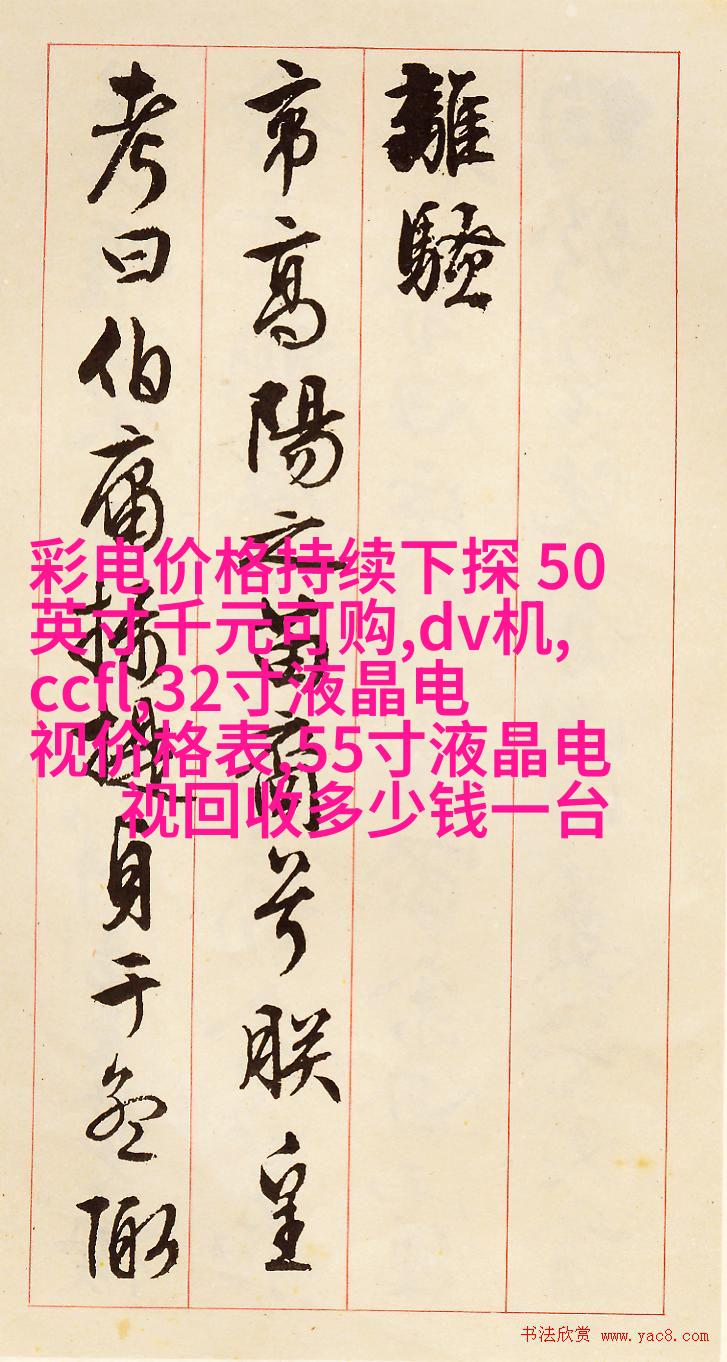 離騷
帝高陽之苗裔兮朕皇
考曰伯庸攝提貞于孟陬
彩电价格持续下探 50
英寸千元可购,dv机,
ccfl,32寸液晶电
视价格表,55寸液晶电
视回收多少钱一台
书法欣赏 www.yac8.com